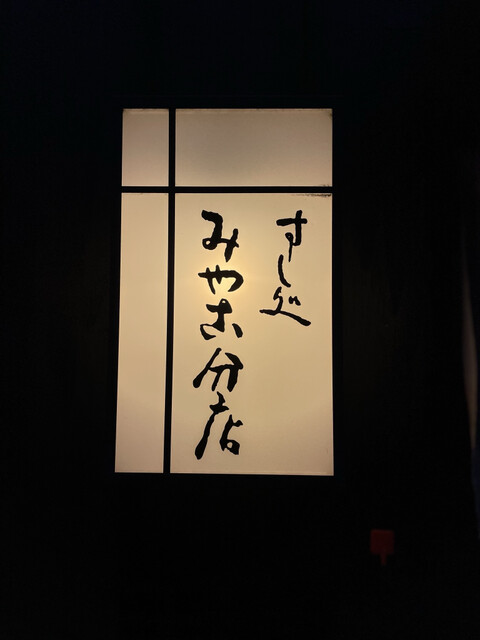 すし処
みやこ分店